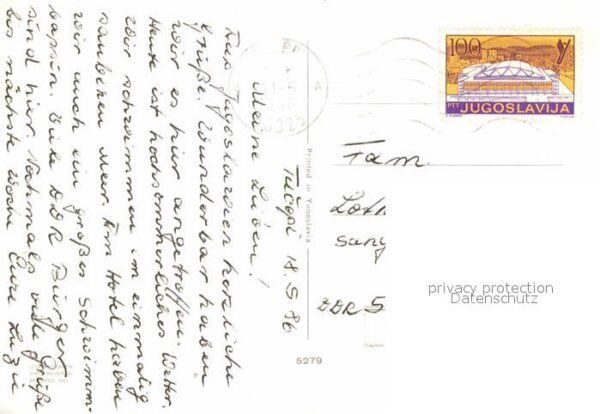 Tučepi 18.5.86
Meine Lieben!
Aus Jugoslawien herzliche
Grüße. Wunderbar haben
wir es hier angetroffen.
Heute ist hochsommerliches Wetter.
Wir schwimmen im einmalig
sauberen Meer. Am Hotel haben
wir auch ein großes Schwimm-
bassin. Viele DDR Bürger
sind hier. Nochmals viele Grüße
bis nächste Woche Eure Luzie
Printed in Yugoslavia
5279
100
PTT JUGOSLAVIJA
Fam.
Loth
Sang
DDR 5
privacy protection
Datenschutz